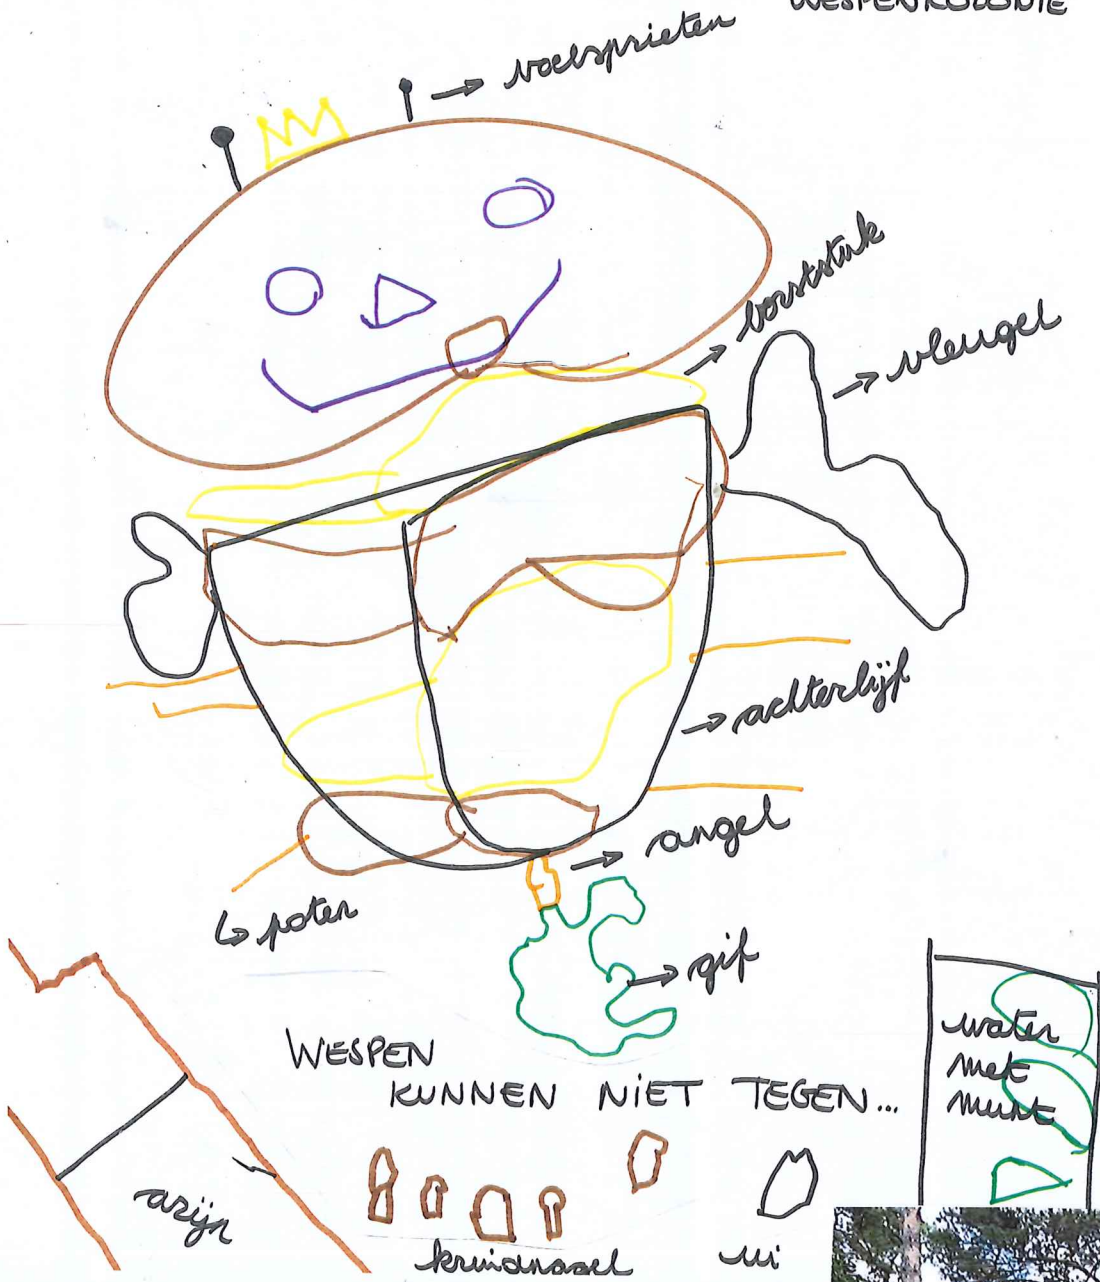 WESPENKOLONIE
→ voelsprieten
→ borststuk
→ vleugel
→ achterlijf
→ angel
↳ poten
→ gif
WESPEN
KUNNEN NIET TEGEN...
water
met
munt
azijn
kruidnagel
ui